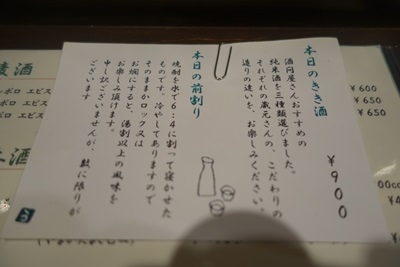 本日のきき酒
酒問屋さんおすすめの
純米酒を三種類選びました。
それぞれの蔵元さんの、こだわりの
造りの違いを、お楽しみください。
¥900
本日の前割り
焼酎を水で6:4に割って寝かせた
ものです。冷やしてありますので
そのままかロック又は
お燗にすると、湯割以上の風味を
お楽しみ頂けます。
申し訳ございませんが、数に限りが
ございます
¥600
¥650
¥650
酒
ボロ エビス
ボロ エビス